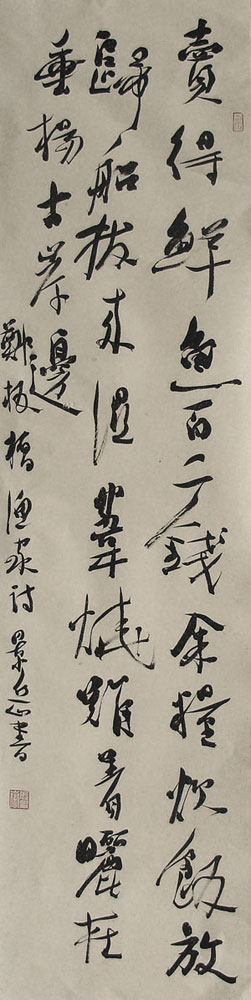 賣得鮮魚百二錢余糧炊飯放
歸船拔來濕葦燒難着曬在
垂楊古岸邊
鄭板橋漁家詩 景㢟書